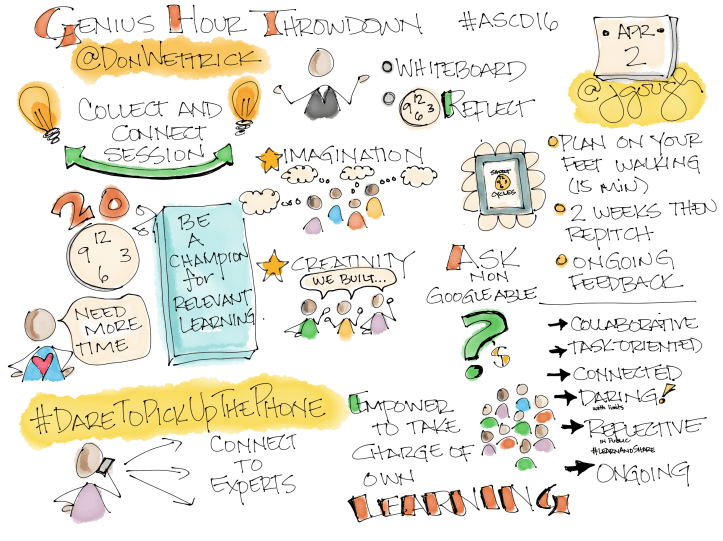 GENIUS HOUR THROWDOWN #ASCD16
@DONWETTRICK
APR
2
@jgough
COLLECT AND
CONNECT
SESSION
WHITEBOARD
12
9 3
6
REFLECT
IMAGINATION
20
12
9 3
6
NEED
MORE
TIME
BE
A
CHAMPION
for
RELEVANT
LEARNING.
CREATIVITY
WE BUILT...
SHORT
CYCLES
ASK
NON
GOOGLEABLE
?'S
PLAN ON YOUR
FEET WALKING
(15 MIN)
2 WEEKS THEN
REPITCH
ONGOING
FEEDBACK
COLLABORATIVE
TASK ORIENTED
CONNECTED
DARING!
with limits
REFLECTIVE
IN PUBLIC
#LEARNANDSHARE
ONGOING
#DARETOPICKUPTHEPHONE
CONNECT
TO
EXPERTS
EMPOWER
TO TAKE
CHARGE OF
OWN
LEARNING